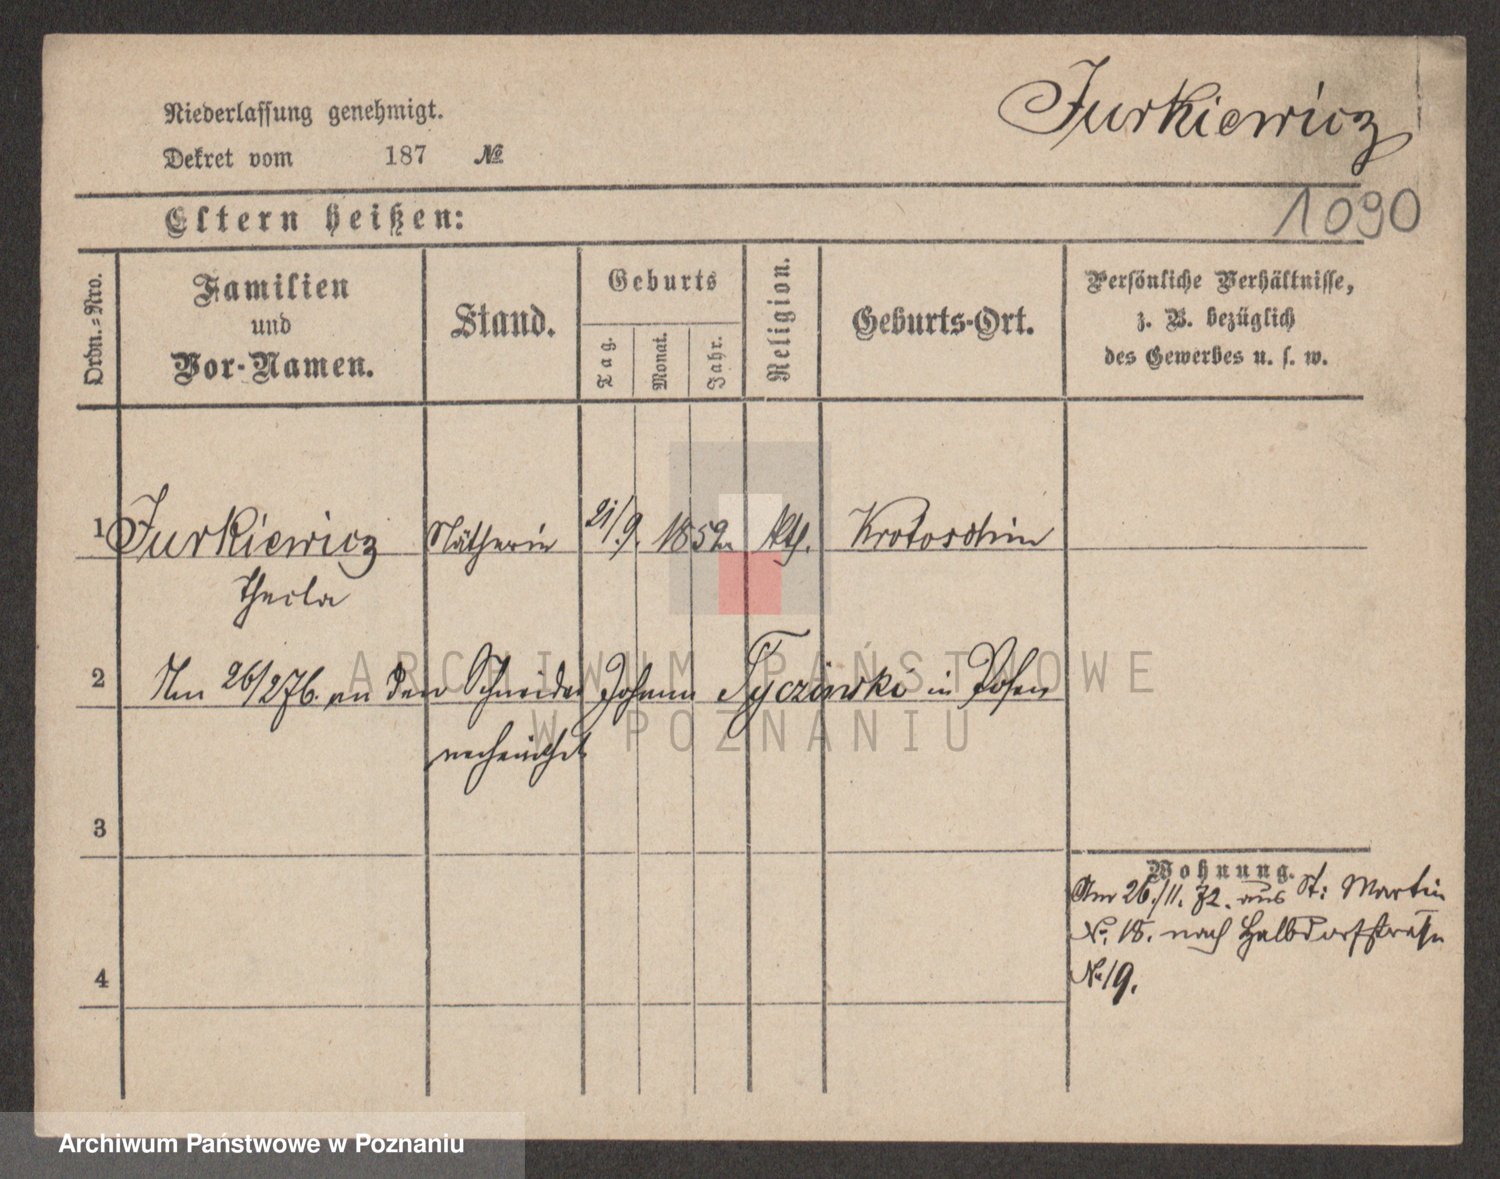 Jurkiewicz
Niederlassung genehmigt.
Dekret vom 187 №
1090
Eltern heißen:
Ordn.-Nro.
Familien
und
Vor-Namen.
Stand.
Geburts
Tag.
Monat.
Jahr.
Religion.
Geburts-Ort.
Persönliche Verhältnisse,
z. B. bezüglich
des Gewerbes u. s. w.
1 Jurkiewicz Nätherin 21/9. 1852 kth. Krotoschin
Thecla
2 Am 26/2 76. an den Schneider Johann in Posen
verheirathet
3
Wohnung.
Am 26./11. 72. aus St: Martin
No. 18. nach Halbdorfstraße
No 19.
4
ARCHIWUM PAŃSTWOWE
W POZNANIU
Archiwum Państwowe w Poznaniu